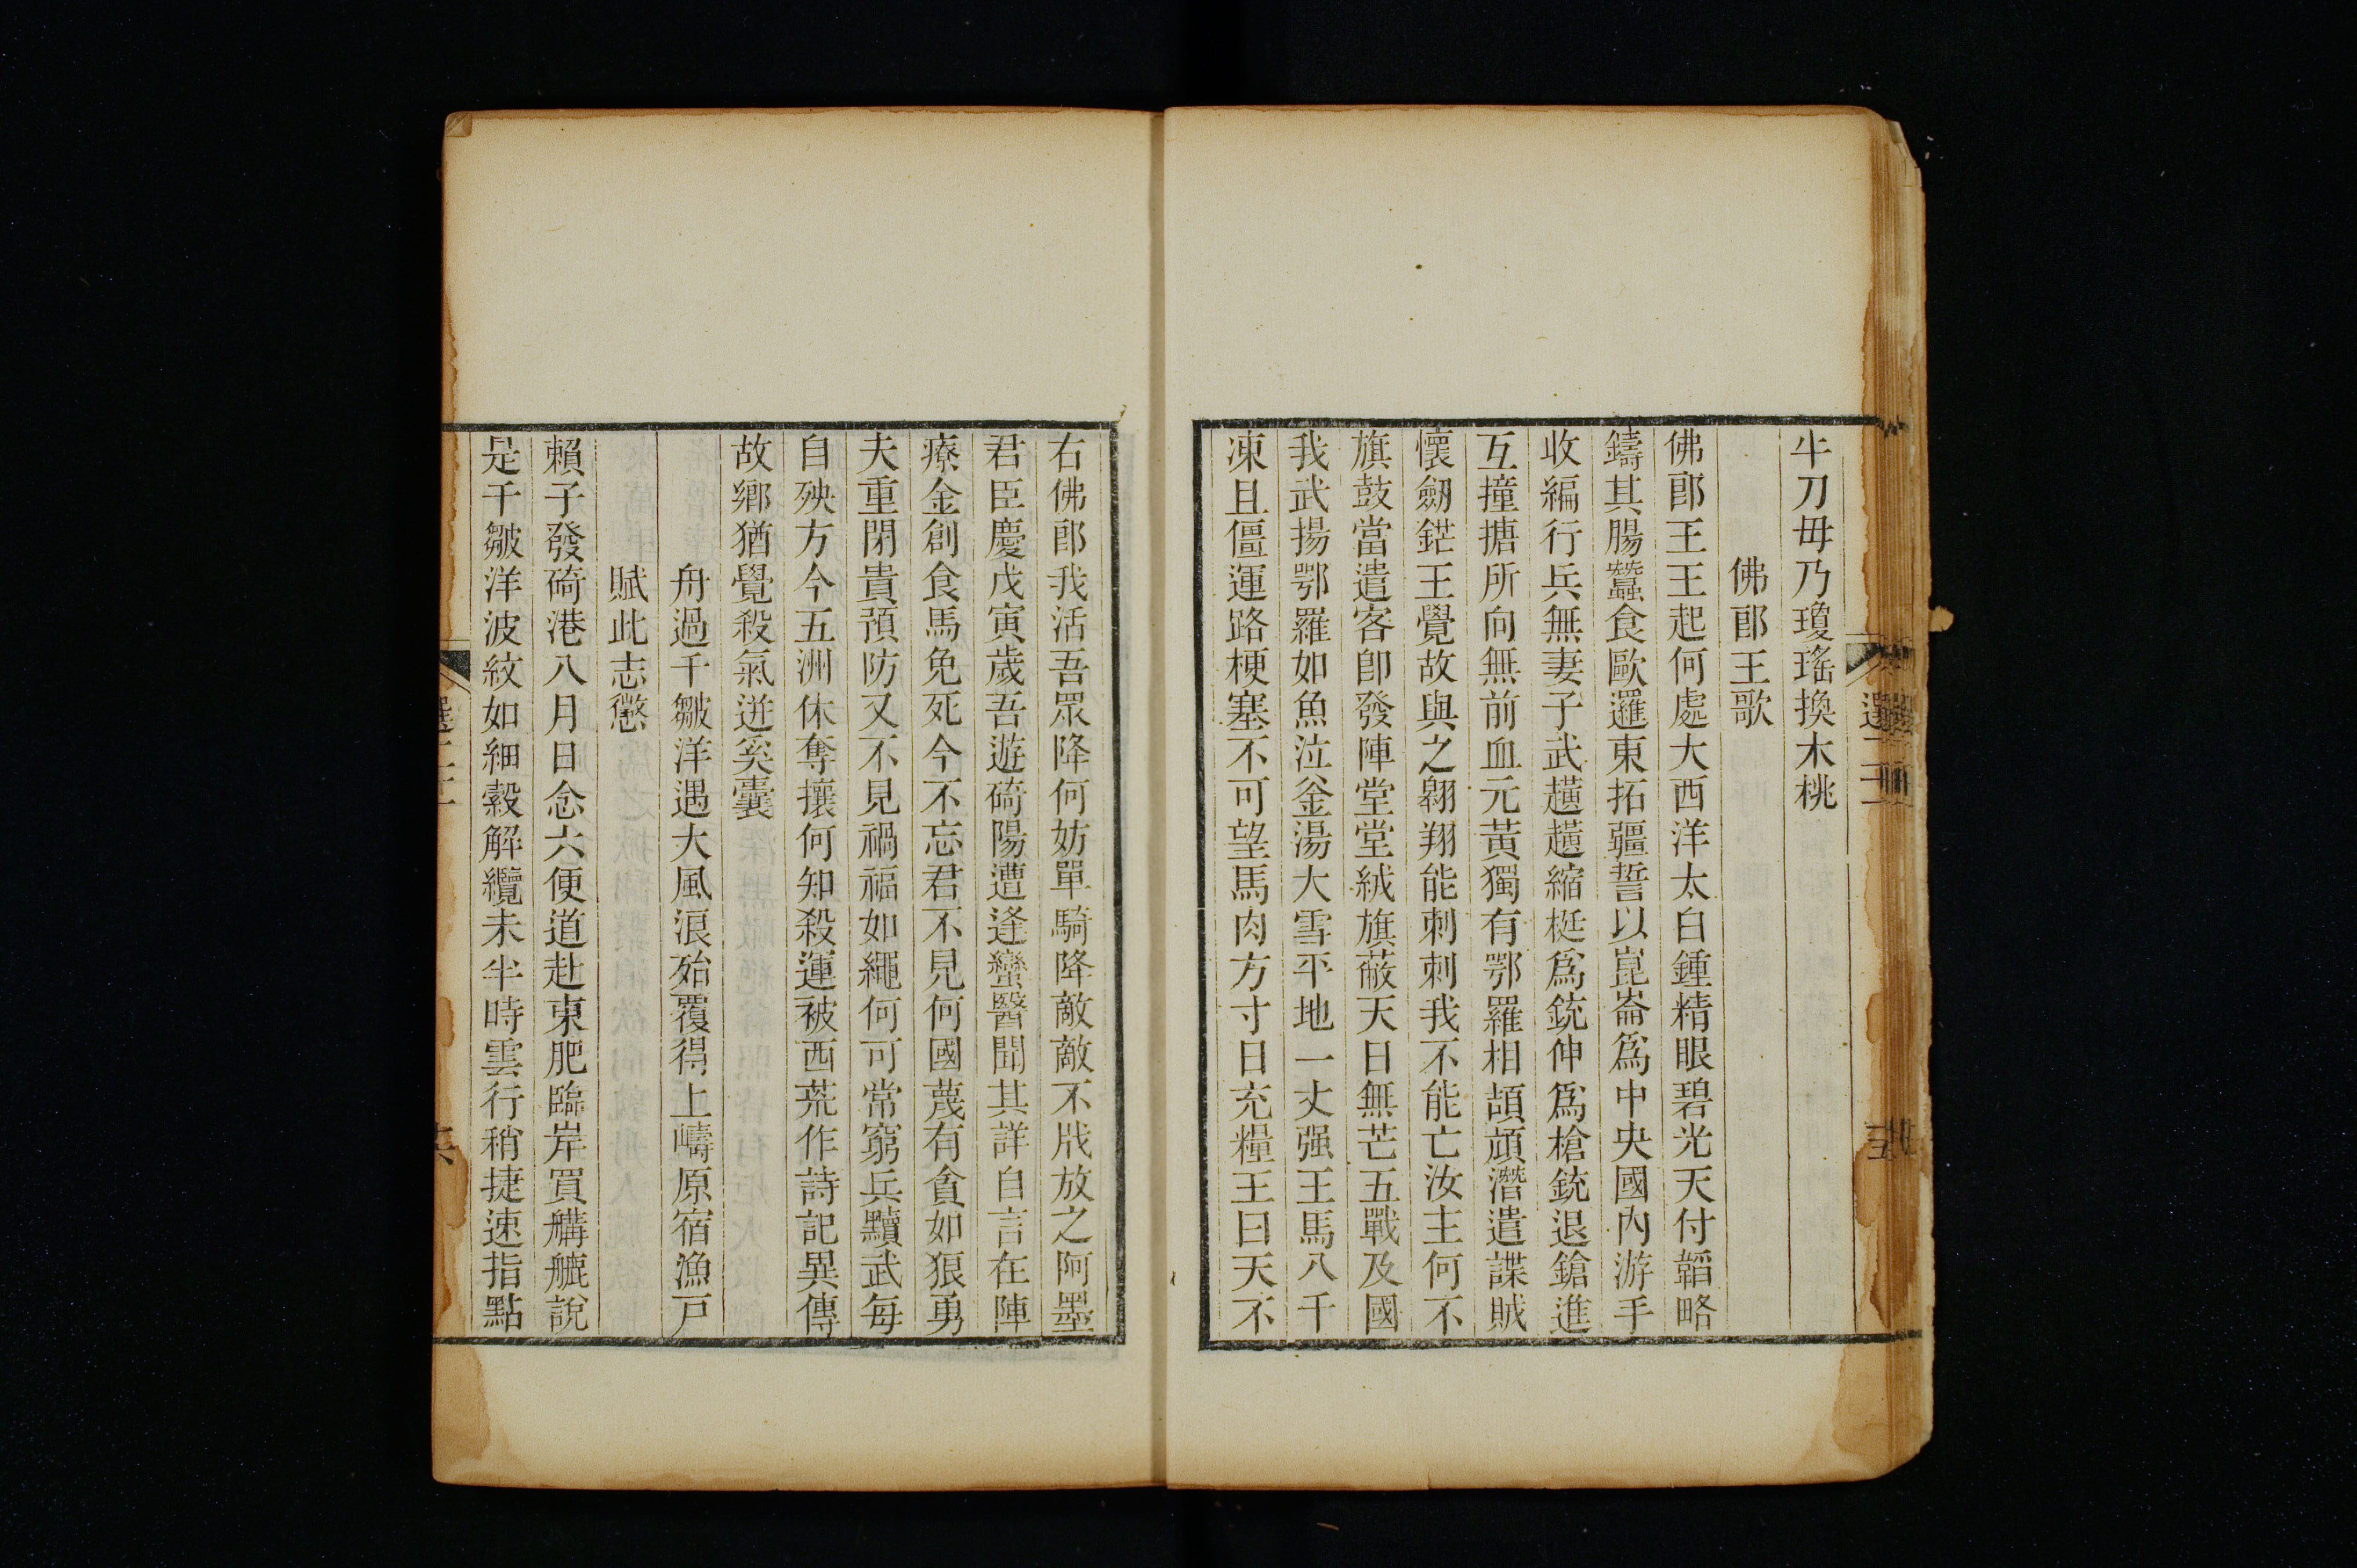 牛刀毋乃瓊瑤換木桃
佛郎王歌
佛郎王王起何處大西洋太白鍾精眼碧光天付韜略
鑄其腸蠶食歐邏東拓疆誓以崑崙爲中央國內游手
收編行兵無妻子武趪趪縮梃爲銃伸爲槍銃退鎗進
互撞搪所向無前血元黃獨有鄂羅相頡頏潛遣諜賊
懷劒鋩王覺故與之翱翔能刺刺我不能亡汝主何不
旗鼓當遣客卽發陣堂堂絨旗蔽天日無芒五戰及國
我武揚鄂羅如魚泣釜湯大雪平地一丈强王馬八千
凍且僵運路梗塞不可望馬肉方寸日充糧王曰天不
右佛郎我活吾眾降何妨單騎降敵敵不戕放之阿墨
君臣慶戊寅歲吾遊碕陽遭逢蠻醫聞其詳自言在陣
療金創食馬免死今不忘君不見何國蔑有貪如狼勇
夫重閉貴預防又不見禍福如繩何可常窮兵黷武每
自殃方今五洲休奪攘何知殺運被西荒作詩記異傳
故鄉猶覺殺氣迸奚囊
舟過千皺洋遇大風浪殆覆得上疇原宿漁戸
賦此志懲
賴子發碕港八月日念六便道赴東肥臨岸買艜艣說
是千皺洋波紋如細縠解纜未半時雲行稍捷速指點